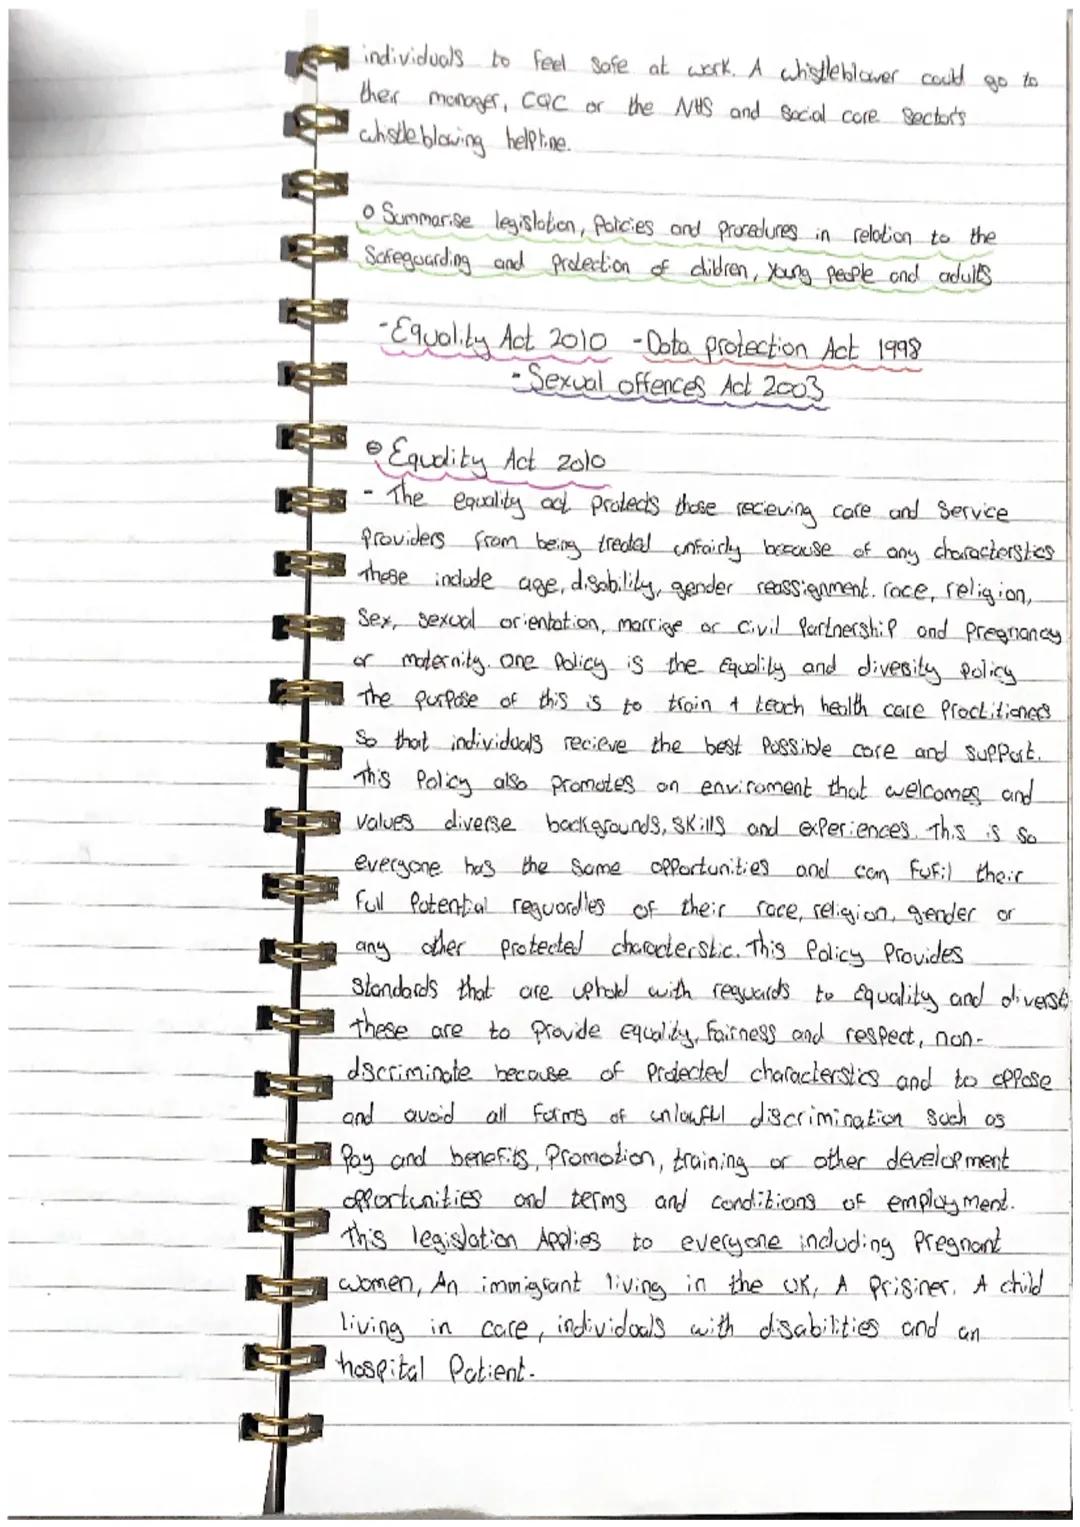 individuals to feel safe at work. A whistleblower could go to
their manager, CQC or the NHS and social care sector's
whistleblowing helpline.
o Summarise legislation, Policies and procedures in relation to the
Safeguarding and protection of children, Young people and adults
-Equality Act 2010 -Data protection Act 1998
-Sexual offences Act 2003
Equality Act 2010
- The equality act protects those recieving care and service
Providers from being treated unfairly because of any characterstics
These include age, disability, gender reassignment. race, religion,
Sex, sexual orientation, marrige or civil Partnership and Pregnancy
or maternity. one Policy is the Equality and divesity Policy
The purpose of this is to train + teach health care Practitioners
So that individuals recieve the best Possible care and support.
This Policy also promotes an enviroment that welcomes and
values diverse backgrounds, skills and experiences. This is so
everyone has the same opportunities and can fufil their
full Potential reguardles of their race, religion, gender or
any other protected characterstic. This Policy Provides
standards that are uphold with reguards to Equality and diversty
These are to Provide equality, Fairness and respect, non-
discriminate because of Protected characterstics and to oppose
and avoid all forms of unlawful discrimination such as
Pay and benefits, Promotion, training or other development
opportunities and terms and conditions of employment.
This legislation Applies to everyone including Pregnant
women, An immigrant living in the UK, A Prisiner. A child
living in care, individuals with disabilities and an
hospital Patient.